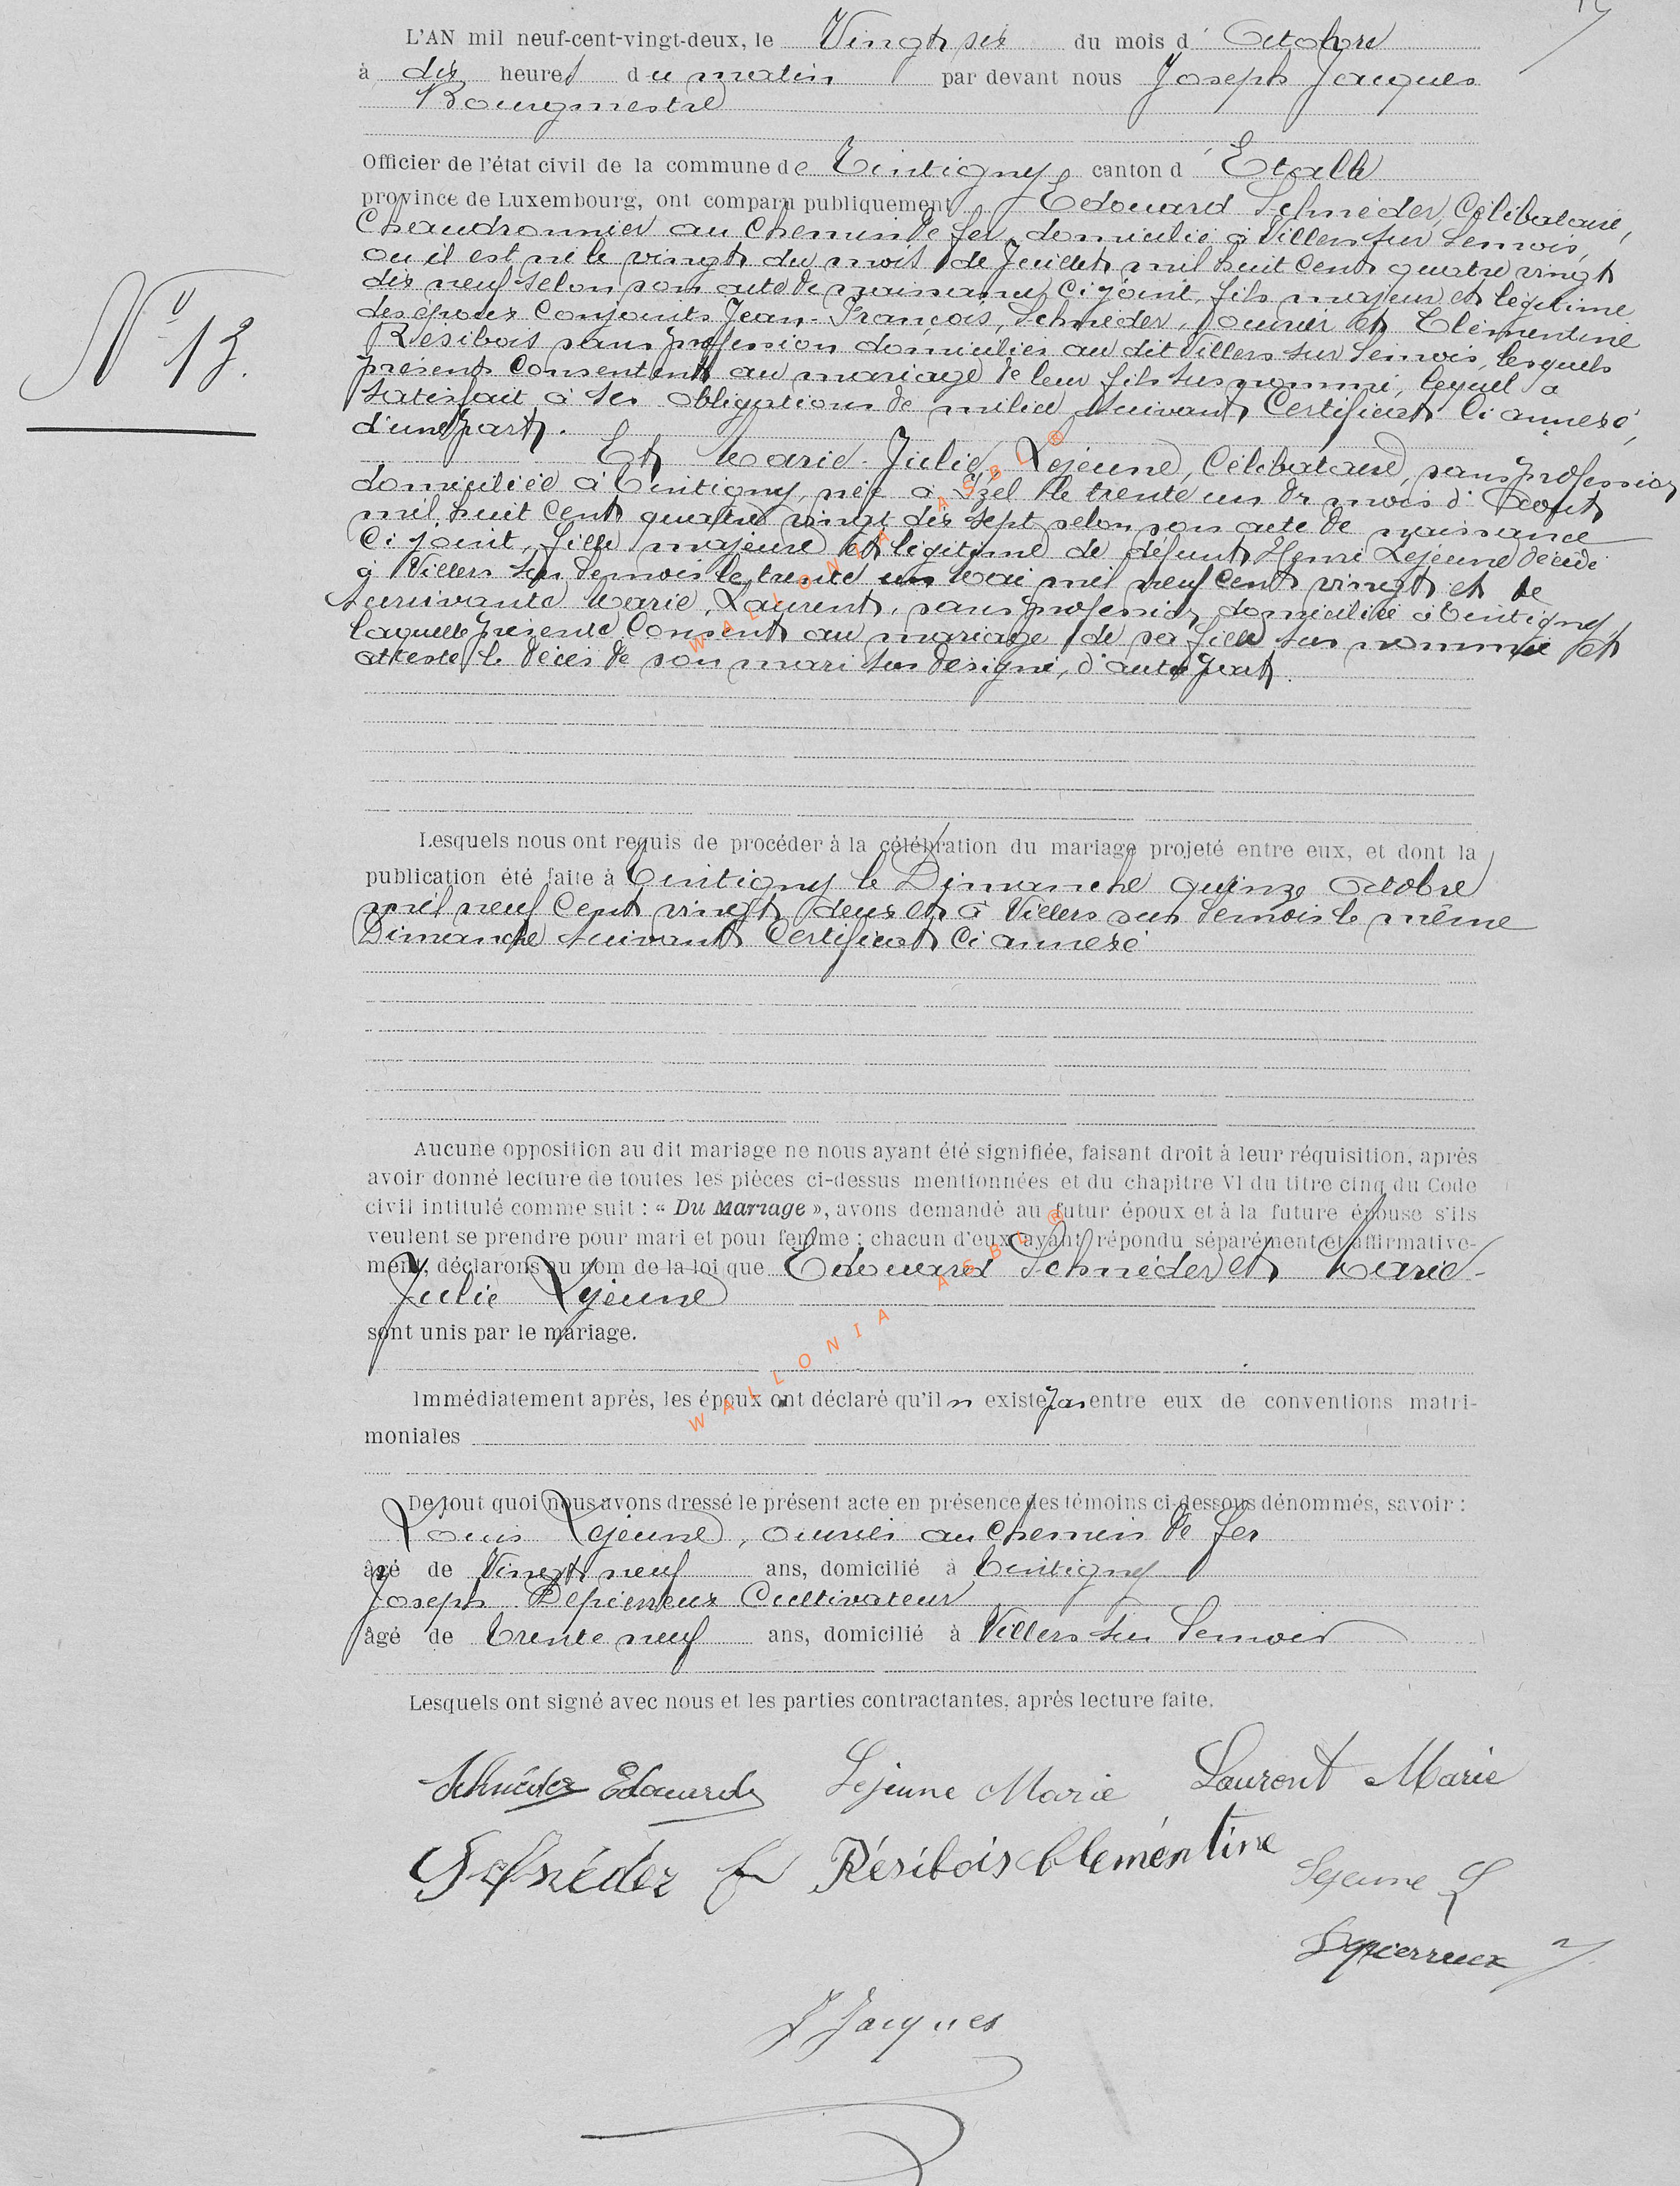 L'AN mil neuf-cent-vingt-deux, le Vingt six du mois d' Octobre
à dix heures du matin par devant nous Joseph Jacques
Bourgmestre
Officier de l'état civil de la commune de Tintigny, canton d' Etalle
province de Luxembourg, ont comparu publiquement Edouard Schnéder, Célibataire,
Chaudronnier au Chemin de fer, domicilié à Villers sur Semois,
où il est né le vingt du mois de Juillet mil huit cent quatre vingt
dix neuf selon son acte de naissance ci joint, fils majeur et légitime
des époux Conjoints Jean-François, Schnéder, ouvrier et Clémentine
Résibois sans profession domiciliés au dit Villers sur Semois, lesquels
présents consentent au mariage de leur fils sus nommé, lequel a
satisfait à ses obligations de milice suivant Certificat ci annexé,
d'une part.
Nº 13.
Et Marie-Julie Lejeune, Célibataire, sans profession
domiciliée à Tintigny, née à Izel le trente un du mois d'Août
mil huit cent quatre vingt dix sept selon son acte de naissance
ci joint, fille majeure et légitime de défunt Henri Lejeune décédé
à Villers sur Semois le trente un Mai mil neuf cent vingt et de
survivante Marie, Laurent, sans profession domiciliée à Tintigny,
laquelle présente consent au mariage de sa fille sus nommée et
atteste le décès de son mari sus désigné, d'autre part.
Lesquels nous ont requis de procéder à la célébration du mariage projeté entre eux, et dont la
publication été faite à Tintigny le Dimanche quinze Octobre
mil neuf cent vingt deux et à Villers sur Semois le même
Dimanche suivant Certificat ci annexé
Aucune opposition au dit mariage ne nous ayant été signifiée, faisant droit à leur réquisition, après
avoir donné lecture de toutes les pièces ci-dessus mentionnées et du chapitre VI du titre cinq du Code
civil intitulé comme suit : « Du Mariage », avons demandé au futur époux et à la future épouse s'ils
veulent se prendre pour mari et pour femme ; chacun d'eux ayant répondu séparément et affirmative-
ment, déclarons au nom de la loi que Edouard Schnéder et Marie-
Julie Lejeune
sont unis par le mariage.
Immédiatement après, les époux ont déclaré qu'il n existe pas entre eux de conventions matri-
moniales
De tout quoi nous avons dressé le présent acte en présence des témoins ci-dessous dénommés, savoir :
Louis Lejeune, ouvrier au Chemin de fer
âgé de Vingt neuf ans, domicilié à Tintigny
Joseph Depierreux Cultivateur
âgé de trente neuf ans, domicilié à Villers sur Semois
Lesquels ont signé avec nous et les parties contractantes, après lecture faite.
Schnéder Edouard Lejeune Marie Laurent Marie
Schnéder Résibois Clémentine Lejeune L
Depierreux J.
J Jacques
WALLONIA ASBL ®
WALLONIA ASBL ®